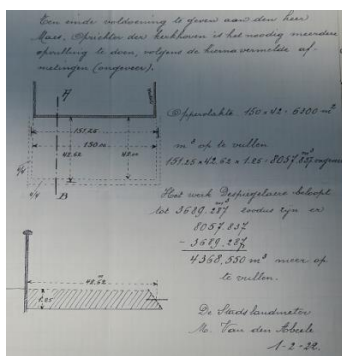 Ten einde voldoening te geven aan den heer
Maes, Oprichter der kerkhoven is het noodig meerdere
opvulling te doen, volgens de hierna vermelde af-
metingen (ongeveer).
A
151.25
150 m
42.62
42 m
4/4
4/4
B
Oppervlakte 150 x 42 = 6300 m²
m³ op te vullen
151.25 x 42.62 x 1.25 = 8057.837 m³
Het werk Despiegelaere beloopt
tot 3689.287 m³ zodus zijn er
8057.837
- 3689.287
4368,550 m³ meer op
te vullen.
42.62
1.25
De Stadslandmeter
M. Van den Abeele
1-2-22.